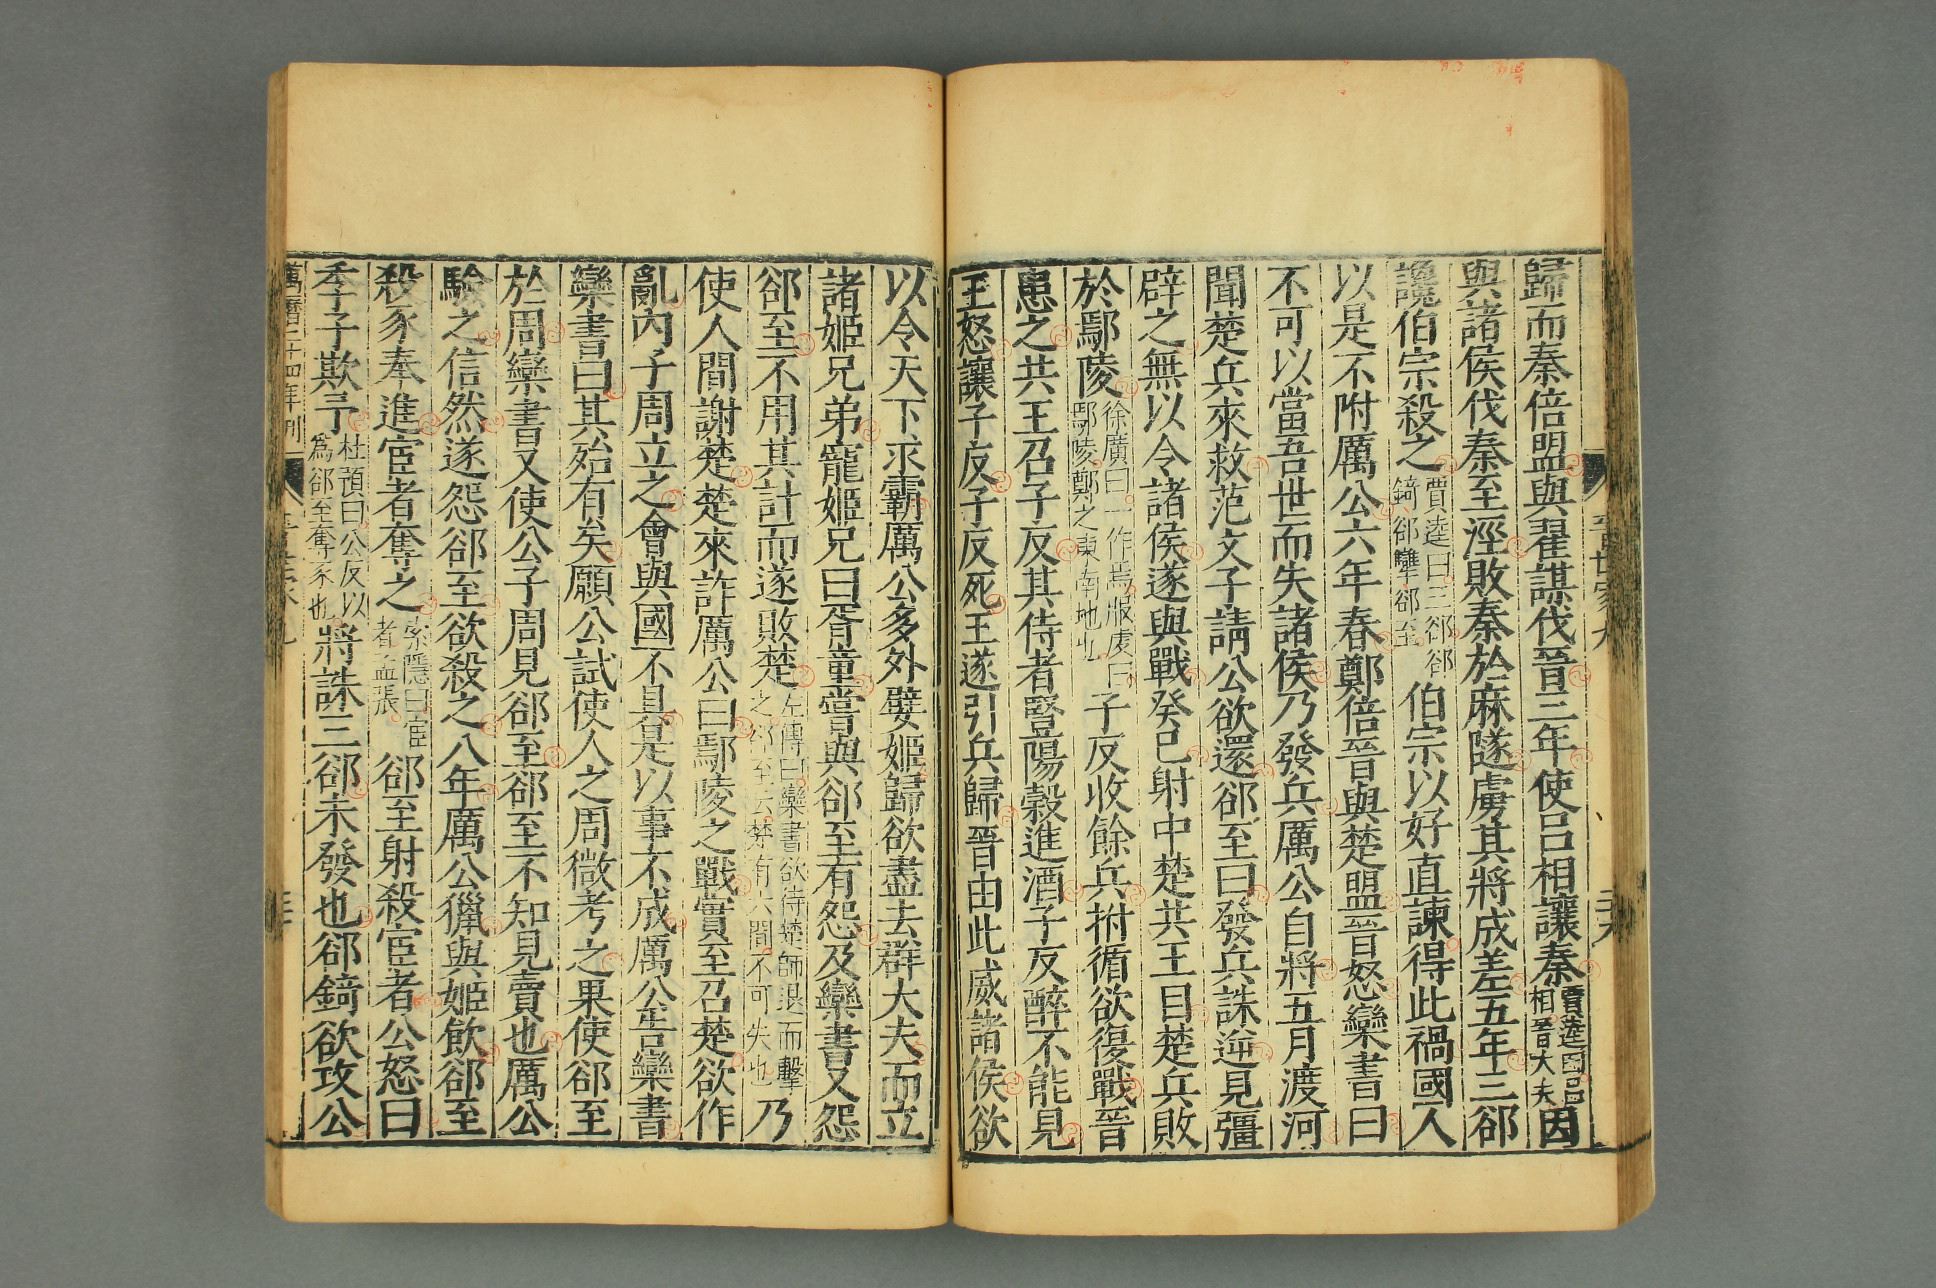 歸而秦倍盟與翟謀伐晉三年使呂相讓秦賈逵曰呂相晉大夫因
與諸侯伐秦至涇敗秦於麻隧虜其將成差五年三郤
讒伯宗殺之賈逵曰三郤郤錡郤犨郤至伯宗以好直諫得此禍國人
以是不附厲公六年春鄭倍晉與楚盟晉怒欒書曰
不可以當吾世而失諸侯乃發兵厲公自將五月渡河
聞楚兵來救范文子請公欲還郤至曰發兵誅逆見彊
辟之無以令諸侯遂與戰癸巳射中楚共王目楚兵敗
於鄢陵徐廣曰一作焉服虔曰鄢陵鄭之東南地也子反收餘兵拊循欲復戰晉
患之共王召子反其侍者豎陽穀進酒子反醉不能見
王怒讓子反子反死王遂引兵歸晉由此威諸侯欲
以令天下求霸厲公多外嬖姬歸欲盡去群大夫而立
諸姬兄弟寵姬兄曰胥童嘗與郤至有怨及欒書又怨
郤至不用其計而遂敗楚左傳曰欒書欲待楚師退而擊之郤至云楚有六間不可失也乃
使人間謝楚楚來詐厲公曰鄢陵之戰實至召楚欲作
亂內子周立之會與國不具是以事不成厲公告欒書
欒書曰其殆有矣願公試使人之周微考之果使郤至
於周欒書又使公子周見郤至郤至不知見賣也厲公
驗之信然遂怨郤至欲殺之八年厲公獵與姬飲郤至
殺豕奉進宦者奪之索隱曰宦者孟張郤至射殺宦者公怒曰
季子欺予杜預曰公反以爲郤至奪豕也將誅三郤未發也郤錡欲攻公
萬曆二十四年刊
晉世家九